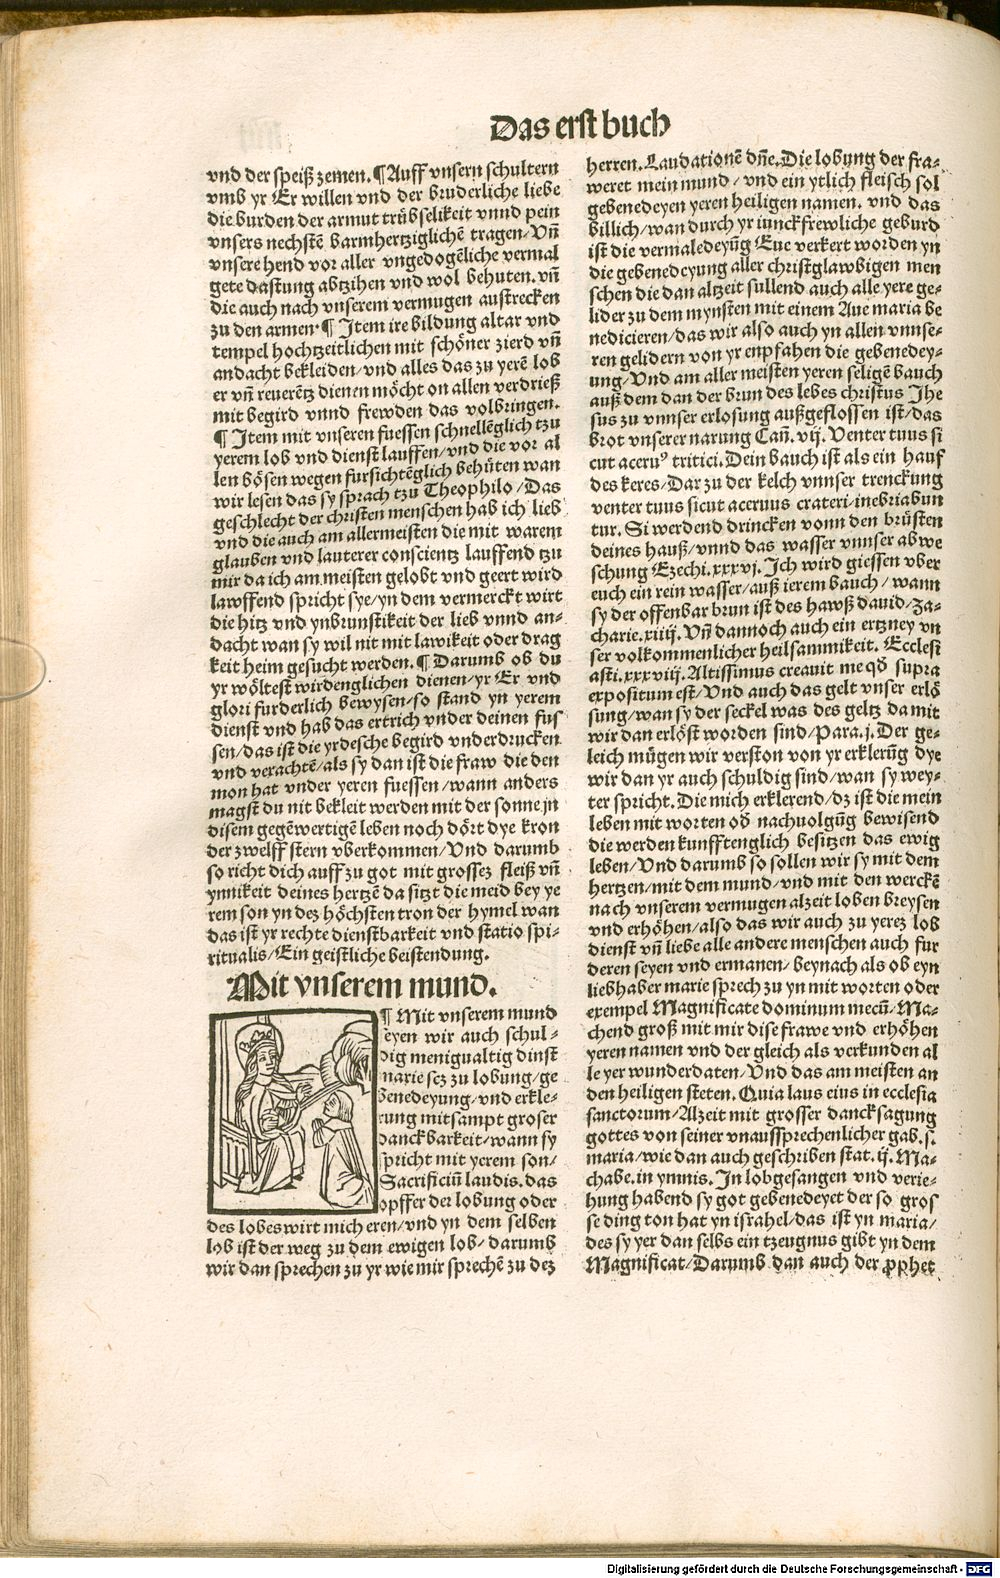 Das erst buch
vnd der speiß zemen. ¶ Auff vnsern schultern
vmb yr Er willen vnd der bruderliche liebe
die burden der armut trübselikeit vnnd pein
vnsers nechstē barmhertziglichē tragen/Vn̄
vnsere hend vor aller vngedogēliche vermal
gete dastung abtzihen vnd wol behuten. vn̄
die auch nach vnserem vermugen austrecken
zu den armen. ¶ Item ire bildung altar vnd
tempel hochtzeitlichen mit schöner zierd vn̄
andacht bekleiden/vnd alles das zu yerē lob
er vn̄ reuerētz dienen möcht on allen verdrieß
mit begird vnnd frewden das volbringen.
¶ Item mit vnseren fuessen schnellēglich tzu
yerem lob vnd dienst lauffen/vnd die vor al
len bösen wegen fursichtēglich behüten wan
wir lesen das sy sprach tzu Theophilo/Das
geschlecht der christen menschen hab ich lieb
vnd die auch am allermeisten die mit warem
glauben vnd lauterer conscientz lauffend tzu
mir da ich am meisten gelobt vnd geert wird
lawffend spricht sye/yn dem vermerckt wirt
die hitz vnd ynbrunstikeit der lieb vnnd an-
dacht wan sy wil nit mit lawikeit oder drag
keit heim gesucht werden. ¶ Darumb ob du
yr wöltest wirdenglichen dienen/yr Er vnd
glori furderlich bewysen/so stand yn yerem
dienst vnd hab das ertrich vnder deinen fus
sen/das ist die yrdesche begird vnderdrucken
vnd verachtē/als sy dan ist die fraw die den
mon hat vnder yeren fuessen/wann anders
magst du nit bekleit werden mit der sonne jn
disem gegēwertigē leben noch dört dye kron
der zwelff stern vberkommen/Vnd darumb
so richt dich auff zu got mit grossez fleiß vn̄
ynnikeit deines hertzē da sitzt die meid bey ye
rem son yn dez höchsten tron der hymel wan
das ist yr rechte dienstbarkeit vnd statio spi-
ritualis/Ein geistliche beistendung.
Mit vnserem mund.
¶ Mit vnserem mund
seyen wir auch schul-
dig menigualtig dinst
marie sez zu lobung/ge
benedeyung/vnd erkle-
rung mitsampt groser
danckbarkeit/wann sy
spricht mit yerem son/
Sacrificiū laudis. das
opffer der lobung oder
des lobes wirt mich eren/vnd yn dem selben
lob ist der weg zu dem ewigen lob/darumb
wir dan sprechen zu yr wie mir sprechē zu dez
herren. Laudationē dn̄e. Die lobung der fra-
weret mein mund/vnd ein ytlich fleisch sol
gebenedeyen yeren heiligen namen. vnd das
billich/wan durch yr iunckfrewliche geburd
ist die vermaledeyūg Eue verkert worden yn
die gebenedeyung aller christglawbigen men
schen die dan altzeit sullend auch alle yere ge-
lider zu dem mynsten mit einem Aue maria be
nedicieren/das wir also auch yn allen vnnse-
ren gelidern von yr enpfahen die gebenedey-
ung/Vnd am aller meisten yeren seligē bauch
auß dem dan der brun des lebes christus Jhe
sus zu vnnser erlosung außgeflossen ist/das
brot vnserer narung Can̄. vij. Venter tuus si
cut aceruꝰ tritici. Dein bauch ist als ein hauf
des keres/Dar zu der kelch vnnser trenckung
venter tuus sicut aceruus crateri/inebriabun
tur. Si werdend drincken vonn den brüsten
deines hauß/vnnd das wasser vnnser abwe
schung Ezechi. xxxvj. Ich wird giessen vber
euch ein rein wasser/auß ierem bauch/wann
sy der offenbar brun ist des hawß dauid/Za-
charie. xiiij. Vn̄ dannoch auch ein ertzney vn
ser volkommenlicher heilsammikeit. Ecclesi
asti. xxxviij. Altissimus creauit me qd̄ supra
expositum est/Vnd auch das gelt vnser erlö
sung/wan sy der seckel was des geltz da mit
wir dan erlöst worden sind/Para. j. Der ge-
leich mügen wir verston von yr erklerūg dye
wir dan yr auch schuldig sind/wan sy wey-
ter spricht. Die mich erklerend/dz ist die mein
leben mit worten od̄ nachuolgūg bewisend
die werden kunfftenglich besitzen das ewig
leben/Vnd darumb so sollen wir sy mit dem
hertzen/mit dem mund/vnd mit den werckē
nach vnserem vermugen alzeit loben breysen
vnd erhöhen/also das wir auch zu yerez lob
dienst vn̄ liebe alle andere menschen auch fur
deren seyen vnd ermanen/beynach als ob eyn
liebhaber marie sprech zu yn mit worten oder
exempel Magnificate dominum mecū/Ma-
chend groß mit mir dise frawe vnd erhöhen
yeren namen vnd der gleich als verkunden al
le yer wunderdaten/Vnd das am meisten an
den heiligen steten. Quia laus eius in ecclesia
sanctorum/Alzeit mit grosser dancksagung
gottes von seiner vnaussprechenlicher gab. s.
maria/wie dan auch geschriben stat. ij. Ma-
chabe. in ymnis. In lobgesangen vnd verie-
hung habend sy got gebenedeyet der so gros
se ding ton hat yn israhel/das ist yn maria/
des sy yer dan selbs ein tzeugnus gibt yn dem
Magnificat/Darumb dan auch der prophet
Digitalisierung gefördert durch die Deutsche Forschungsgemeinschaft - DFG